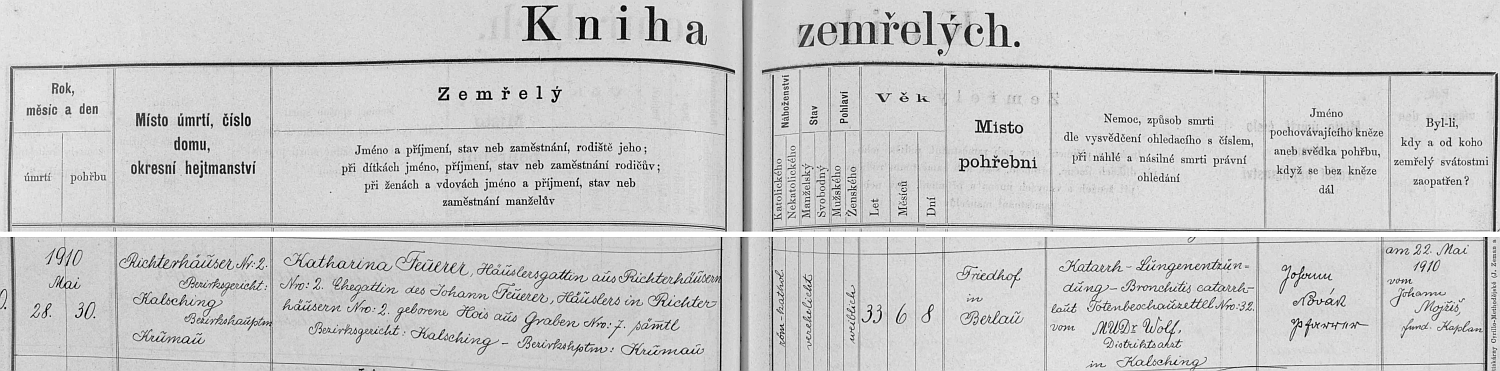 Kniha zemřelých.
Rok,
měsíc a den
úmrtí
pohřbu
Místo úmrtí, číslo
domu,
okresní hejtmanství
Zemřelý
Jméno a příjmení, stav neb zaměstnání, rodiště jeho;
při dítkách jméno, příjmení, stav neb zaměstnání rodičův;
při ženách a vdovách jméno a příjmení, stav neb
zaměstnání manželův
Náboženství
Katolického
Nekatolického
Stav
Manželský
Svobodný
Pohlaví
Mužského
Ženského
Věk
Let
Měsíců
Dní
Místo
pohřební
Nemoc, způsob smrti
dle vysvědčení ohledacího s číslem,
při náhlé a násilné smrti právní
ohledání
Jméno
pochovávajícího kněze
aneb svědka pohřbu,
když se bez kněze
dál
Byl-li,
kdy a od koho
zemřelý svátostmi
zaopatřen?
1910
Mai
28. 30.
Richterhäuser Nr: 2.
Bezirksgericht:
Kalsching
Bezirkshauptm
Krumaŭ
Katharina Feŭerer, Häuslersgattin aus Richterhäusern
Nro: 2. Ehegattin des Johann Feŭerer, Häuslers in Richter
häusern Nro: 2. geborene Hois aus Graben Nro: 7. sämtl
Bezirksgericht: Kalsching – Bezirkshptm: Krŭmaŭ
röm. kathol.
verehelicht
weiblich
33 6 8
Friedhof
in
Berlaŭ
Katarrh – Lŭngenentzŭn-
dŭng – Bronchitis catarrh-
laŭt Totenbeschaŭzettel Nro: 32.
vom MUDr Wolf,
Distriktsarzt
in Kalsching
Johann
Novák
Pfarrer
am 22. Mai
1910
vom
Johann
Mojžiš,
fund. Kaplan